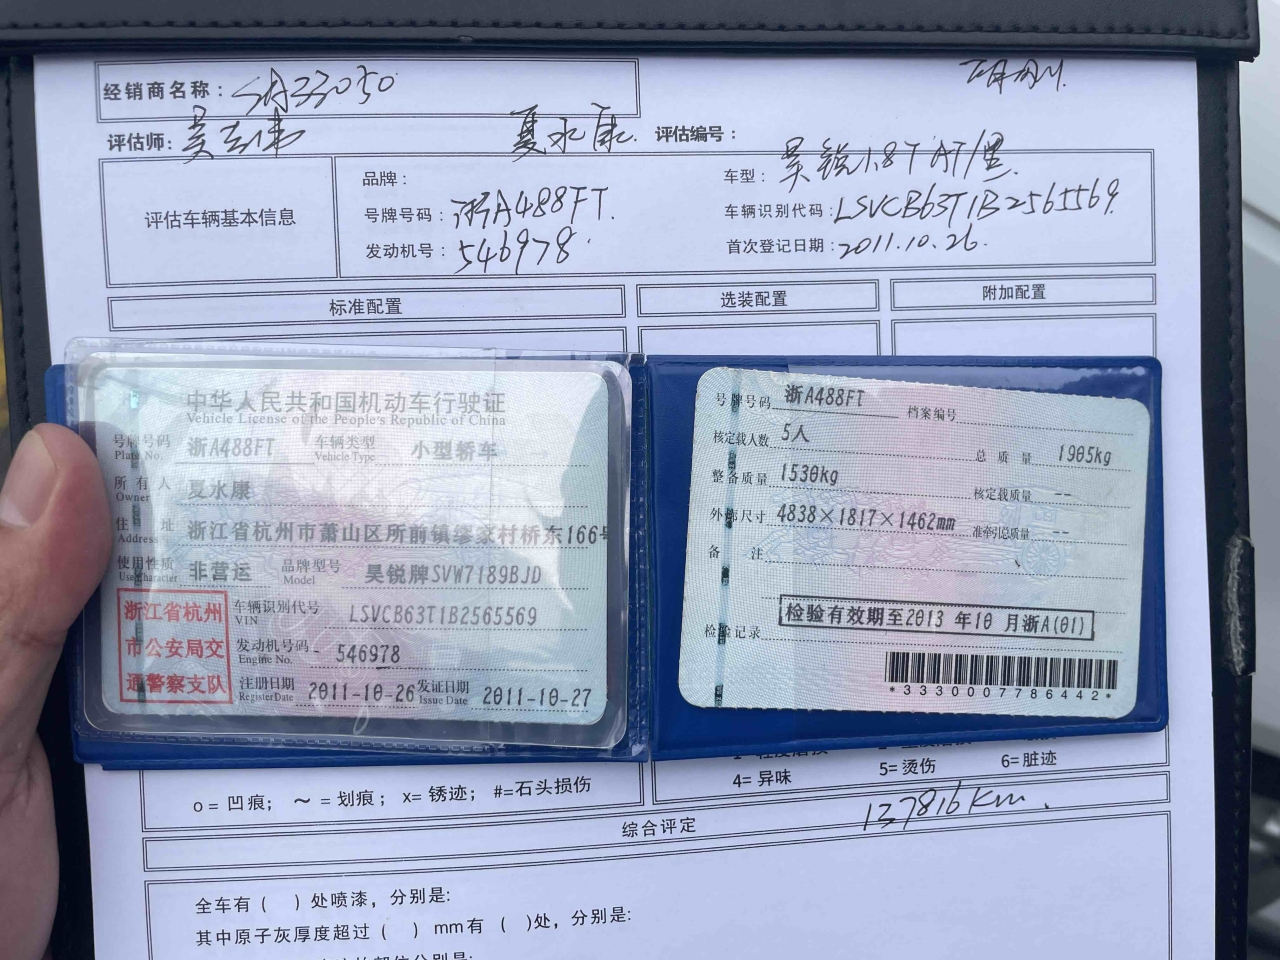 经销商名称: SA33050
评估师: 吴志伟 夏水康 评估编号:
评估车辆基本信息
品牌: 车型: 昊锐1.8T AT/黑
号牌号码: 浙A488FT 车辆识别代码: LSVCB63T1B2565569
发动机号: 546978 首次登记日期: 2011.10.26
标准配置 选装配置 附加配置
中华人民共和国机动车行驶证
Vehicle License of the People's Republic of China
号牌号码 浙A488FT 车辆类型 小型轿车
Plate No. Vehicle Type
所有人 夏水康
Owner
住址 浙江省杭州市萧山区所前镇缪家村桥东166
Address
使用性质 非营运 品牌型号 昊锐牌SVW7189BJD
Use Character Model
浙江省杭州
市公安局交
通警察支队
车辆识别代号 LSVCB63T1B2565569
VIN
发动机号码 546978
Engine No.
注册日期 2011-10-26 发证日期 2011-10-27
Register Date Issue Date
号牌号码 浙A488FT 档案编号
核定载人数 5人 总质量 1905kg
整备质量 1530kg 核定载质量 --
外廓尺寸 4838×1817×1462mm 准牵引总质量 --
备注
检验记录 检验有效期至2013年10月浙A(01)
*3330007786442*
o=凹痕; ~=划痕; x=锈迹; #=石头损伤
4=异味 5=烫伤 6=脏迹
综合评定 137816Km.
全车有( )处喷漆，分别是:
其中原子灰厚度超过( )mm有( )处，分别是: